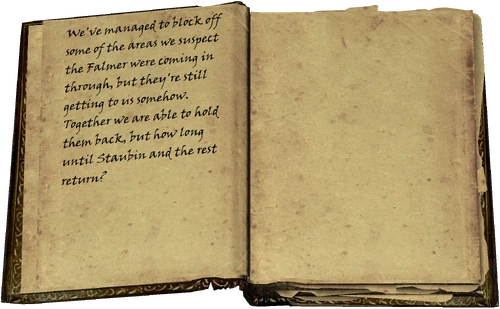 We've managed to block off
some of the areas we suspect
the Falmer were coming in
through, but they're still
getting to us somehow.
Together we are able to hold
them back, but how long
until Staubin and the rest
return?